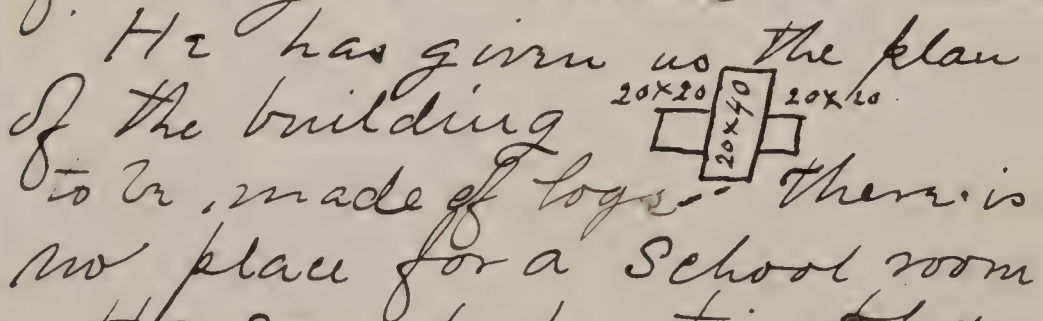 He has given us the plan
of the building 20x20 20x40 20x20
to be, made of logs. There is
no place for a School room